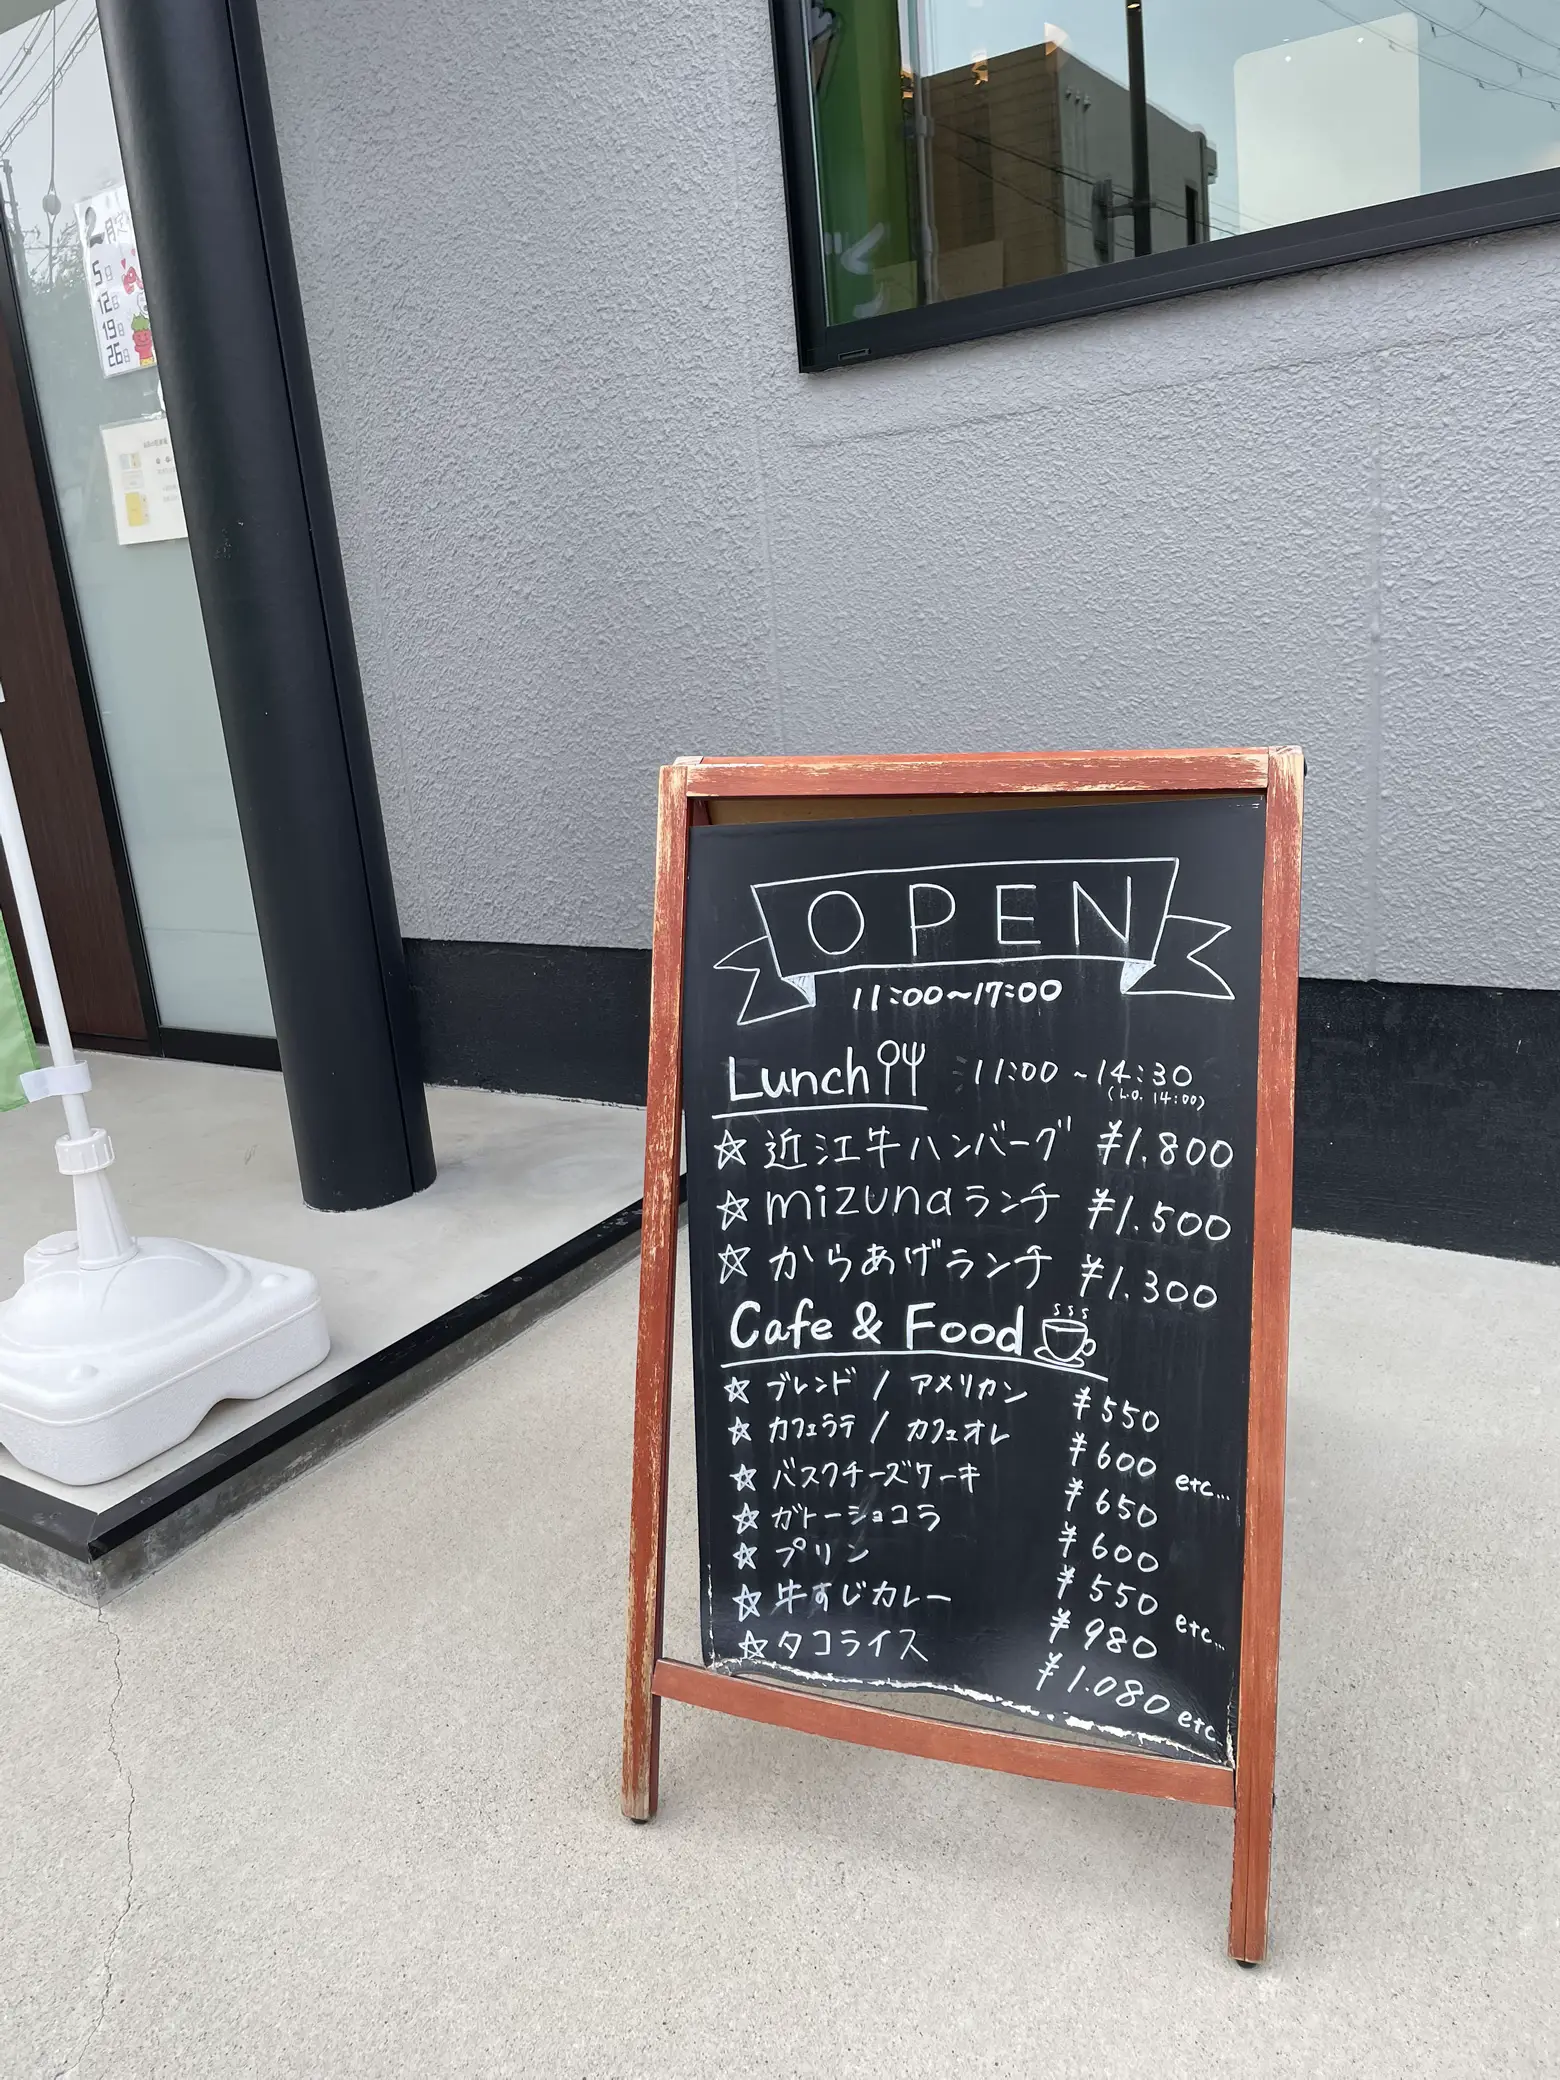 5日
12日
19日
26日
OPEN
11:00~17:00
Lunch 11:00 ~14:30
(L.O. 14:00)
☆ 近江牛ハンバーグ ¥1.800
☆ mizunaランチ ¥1.500
☆ からあげランチ ¥1.300
Cafe & Food
☆ ブレンド / アメリカン ¥550
☆ カフェラテ / カフェオレ ¥600 etc...
☆ バスクチーズケーキ ¥650
☆ ガトーショコラ ¥600
☆ プリン ¥550 etc...
☆ 牛すじカレー ¥980
☆ タコライス ¥1.080 etc